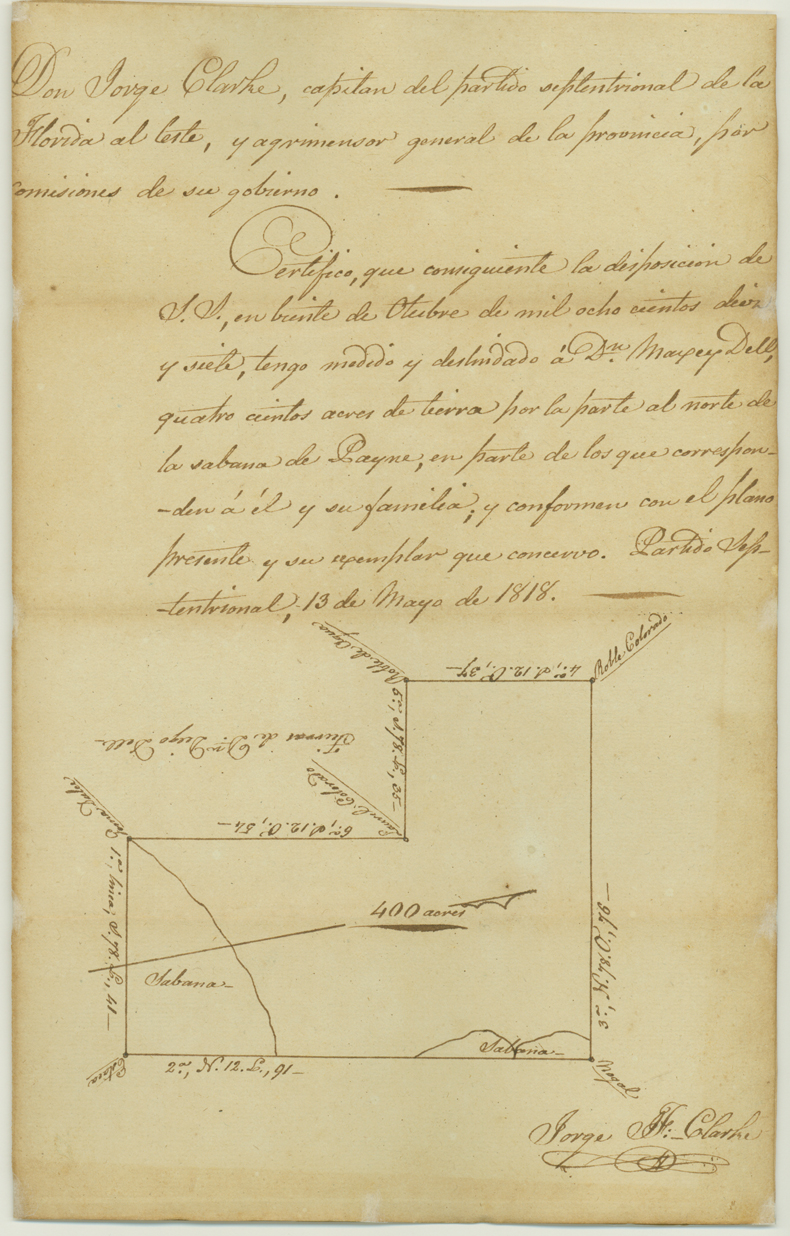 Don Jorge Clarke, capitan del partido septentrional de la
Florida al leste, y agrimensor general de la provincia, por
comisiones de su gobierno.
Certifico, que consiguiente la disposicion de
S. S., en biente de Otubre de mil ocho cientos diez
y siete, tengo medido y deslindado á Dn. Maxey Dell,
quatro cientos acres de tierra por la parte al norte de
la sabana de Payne, en parte de los que correspon-
-den á él y su familia; y conformen con el plano
presente y su exemplar que concervo. Partido Sep-
-tentrional, 13 de Mayo de 1818.
Roble de Agua
Roble Colorado
4a., S. 12. O., 37-
5a., S. 78. E., 35-
Tierras de Dn. Diego Dell-
Laurel Colorado
6a., S. 12. O., 54-
1a. linea, S. 78. E., 41-
400 acres
3a., N. 78. O., 76-
Sabana-
Sabana-
Estaca
2a., N. 12. E., 91-
Nogal
Jorge J. F. Clarke